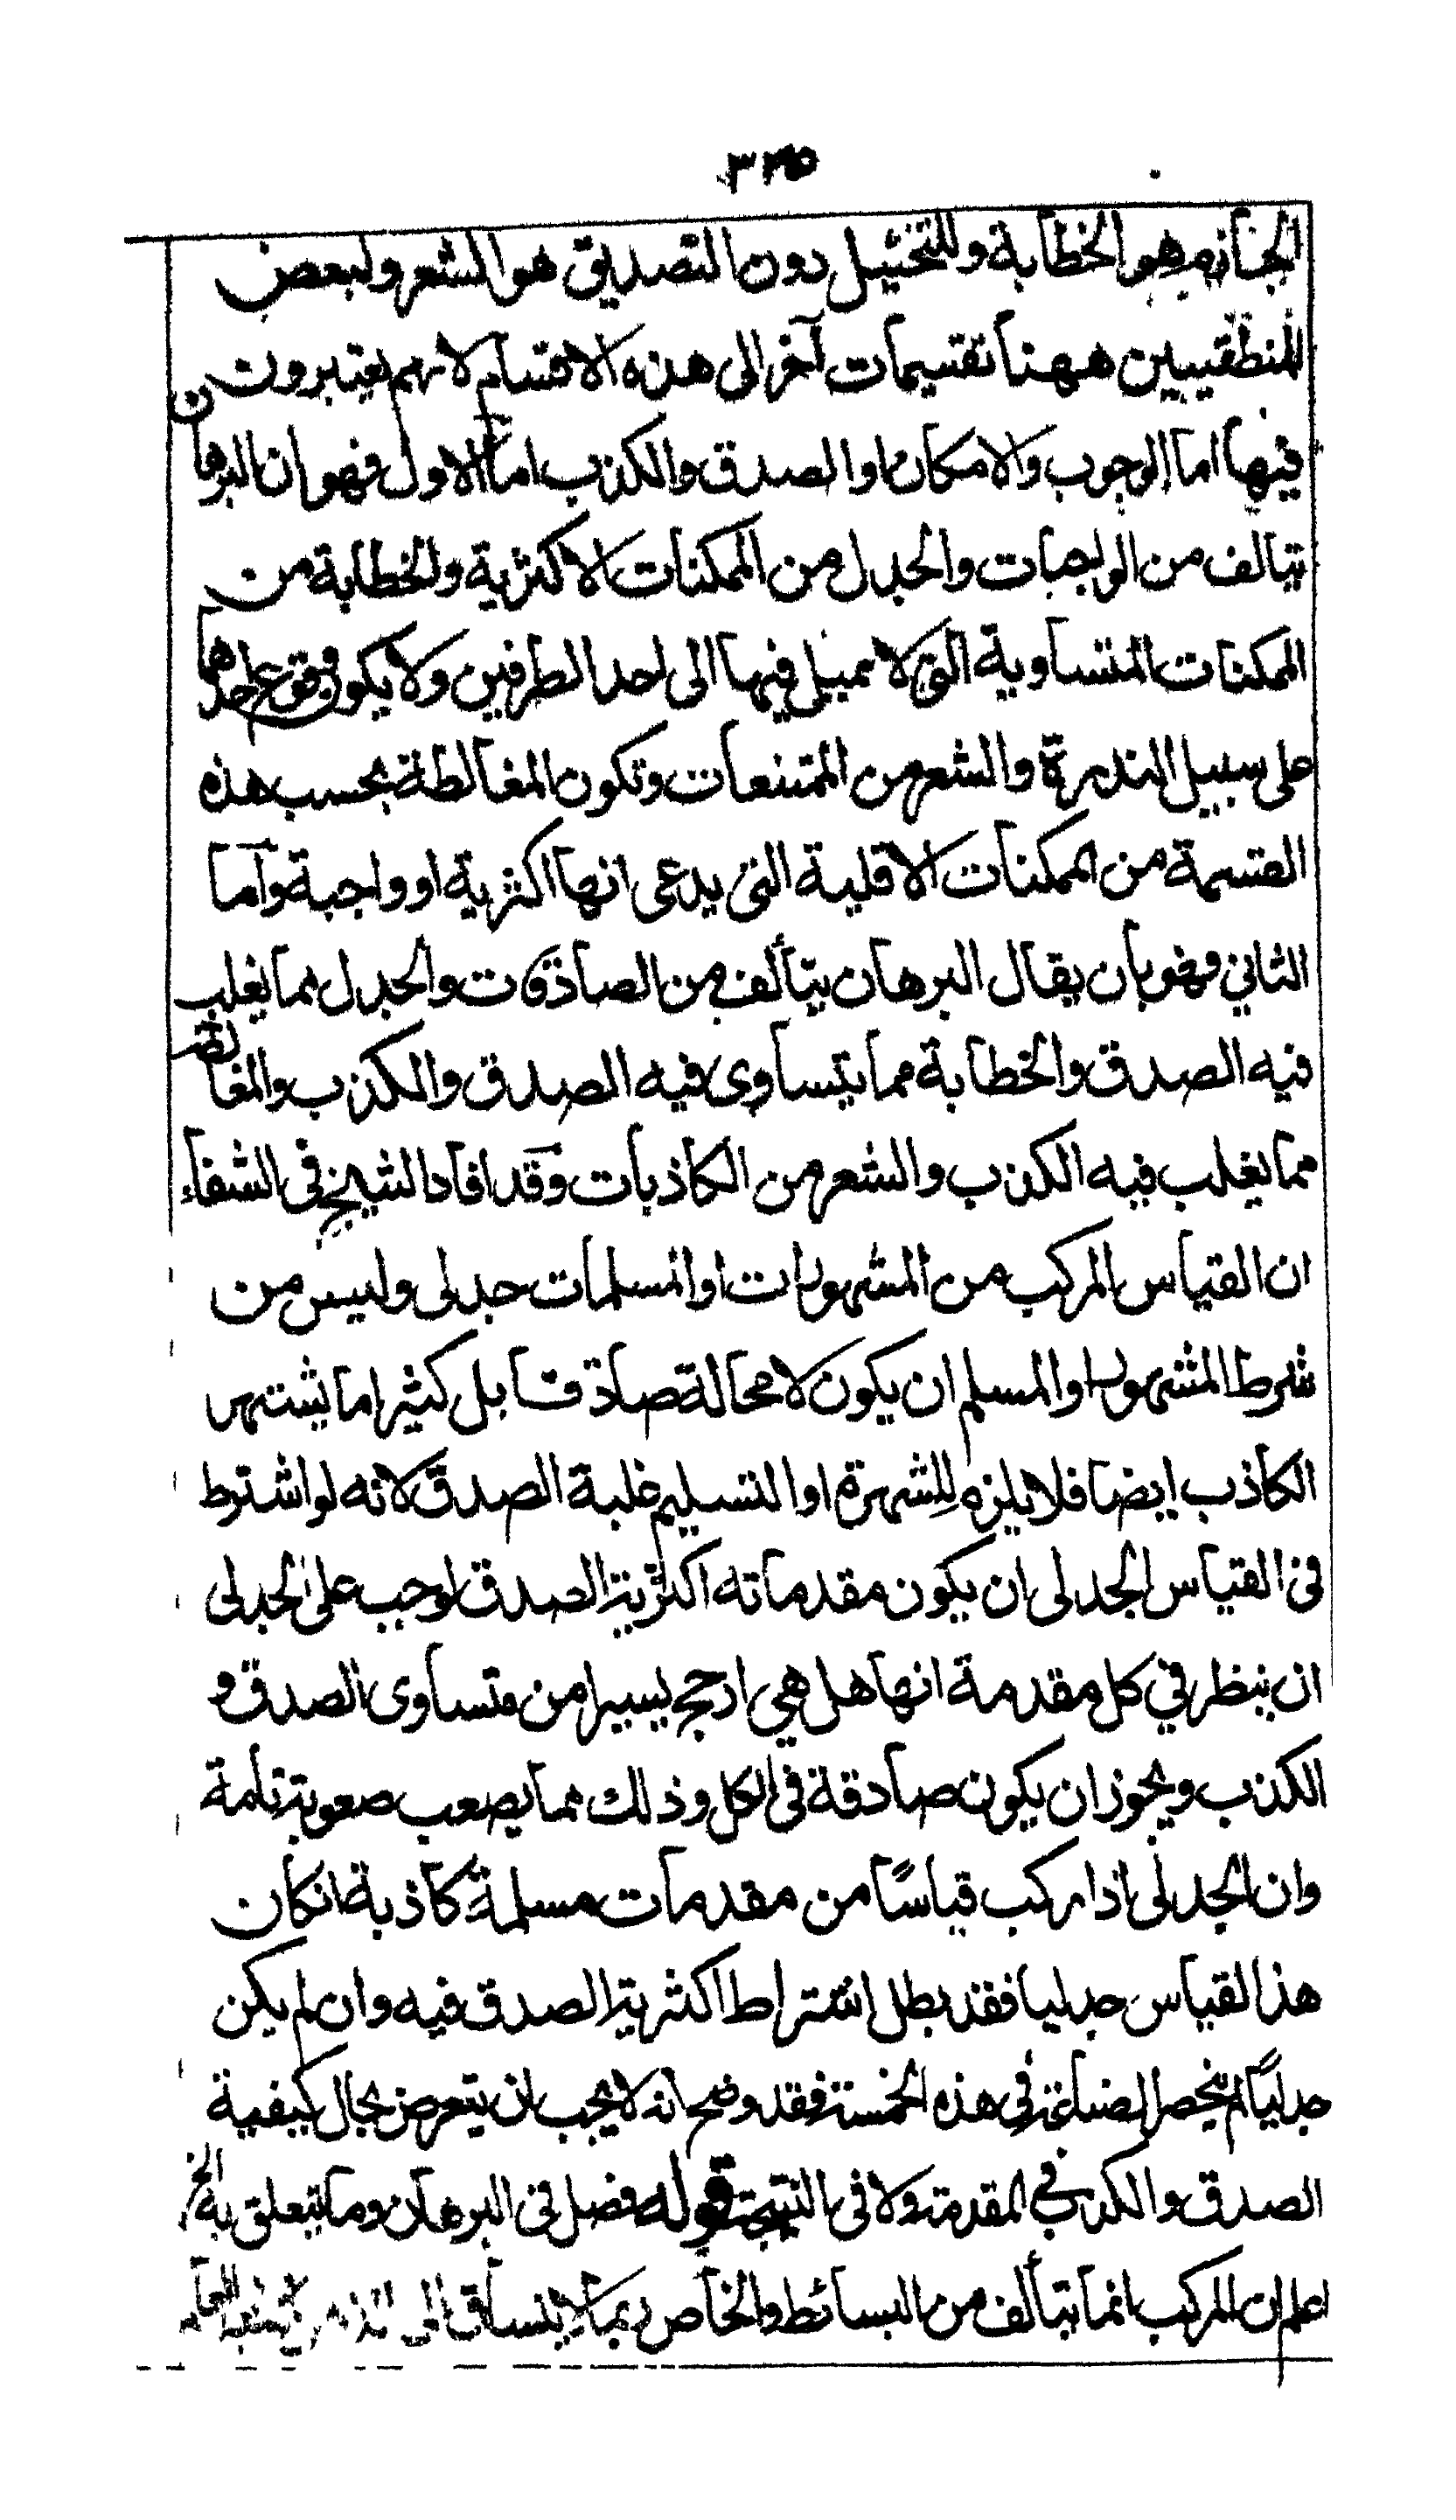 ٣٢٥
الجازم هو الخطابة وللتخييل دون التصديق هو الشعر ولبعض
المنطقيين ههنا تقسيمات آخر الى هذه الاقسام لانهم يعتبرون
فيها اما الوجوب والامكان او الصدق والكذب اما الاول فهو ان البرهان
يتالف من الواجبات والجدل من الممكنات الاكثرية والخطابة من
الممكنات المتساوية التي لا ميل فيها الى احد الطرفين ولا يكون وقوع احدها
على سبيل الندرة والشعر من الممتنعات وتكون المغالطة بحسب هذه
القسمة من الممكنات الاقلية التي يدعى انها اكثرية او واجبة واما
الثاني فهو بأن يقال البرهان يتألف من الصادقات والجدل مما يغلب
فيه الصدق والخطابة مما يتساوى فيه الصدق والكذب والمغالطة
مما يغلب فيه الكذب والشعر من الكاذبات وقد افاد الشيخ فى الشفاء
ان القياس المركب من المشهورات او المسلمات جدلى وليس من
شرط المشهور او المسلم ان يكون لا محالة صادقا بل كثيرا ما يشتهر
الكاذب ايضا فلا يلزم للشهرة او التسليم غلبة الصدق لانه لو اشترط
فى القياس الجدلى ان يكون مقدماته اكثرية الصدق لوجب على الجدلى
ان ينظر في كل مقدمة انها هل هي ارجح يسيرا من متساوى الصدق و
الكذب ويجوز ان يكون صادقة فى الكل وذلك مما يصعب صعوبة تامة
وان الجدلى اذا ركب قياسًا من مقدمات مسلمة كاذبة انكان
هذا القياس جدليا فقد بطل اشتراط اكثرية الصدق فيه وان لم يكن
جدليًا لم ينحصر الصناعة في هذه الخمسة فقد وضح انه لا يجب ان يتعرض بحال كيفية
الصدق والكذب في المقدمة ولا فى النتيجة قوله فصل فى البرهان وما يتعلق به الخ
اعلم ان المركب انما يتألف من البسائط والخاص ربما لا ينساق الى